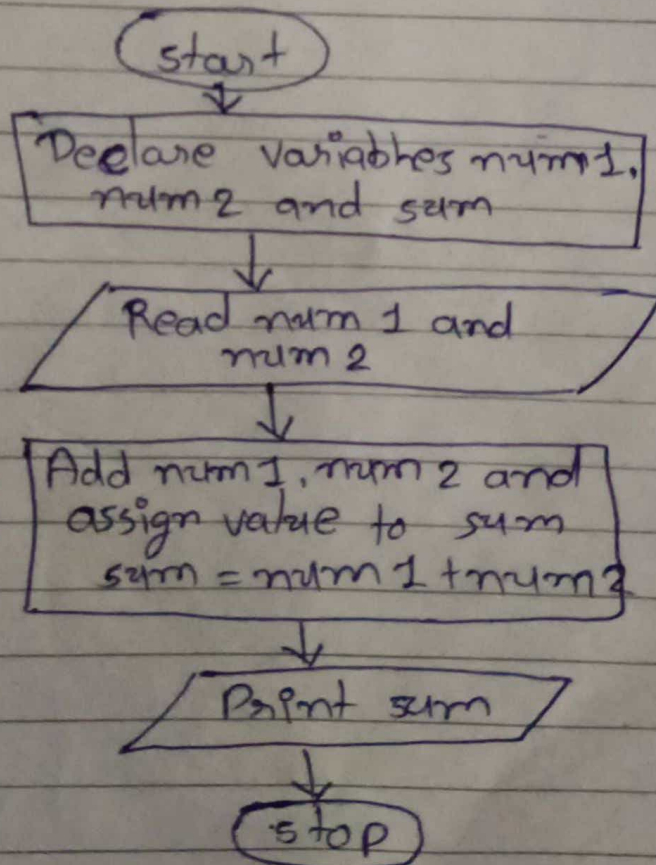 start
Declare variabhes num1,
num2 and sum
Read num 1 and
num 2
Add num1, num 2 and
assign value to sum
sum = num 1 + num 2
Print sum
stop